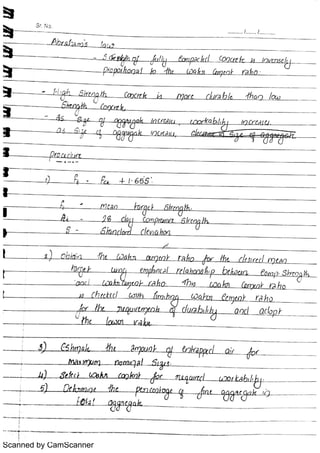 Sr. No.
Abraham's law
- Strength of fully compacted concrete is inversely
proportional to the water cement ratio.
- High Strength concrete is more durable than low
Strength concrete.
- as size of aggregate increases, workability increases.
as size of aggregate increases,
procedure
1) ft = Fck + 1.65S
ft - mean target strength.
fck - 28 day compressive strength
S - Standard deviation
2) Obtain the water cement ratio for the desired mean
target using emphirical relationship between comp. strength
and water cement ratio. The water cement ratio
is checked with limiting water cement ratio.
for the requirements of durability and adopt
the lower value
3) Estimate the amount of entrapped air for
maximum nominal sizes
4) Select water content for required workability.
5) Determine the percentage of fine aggregate in
total aggregate
Scanned by CamScanner